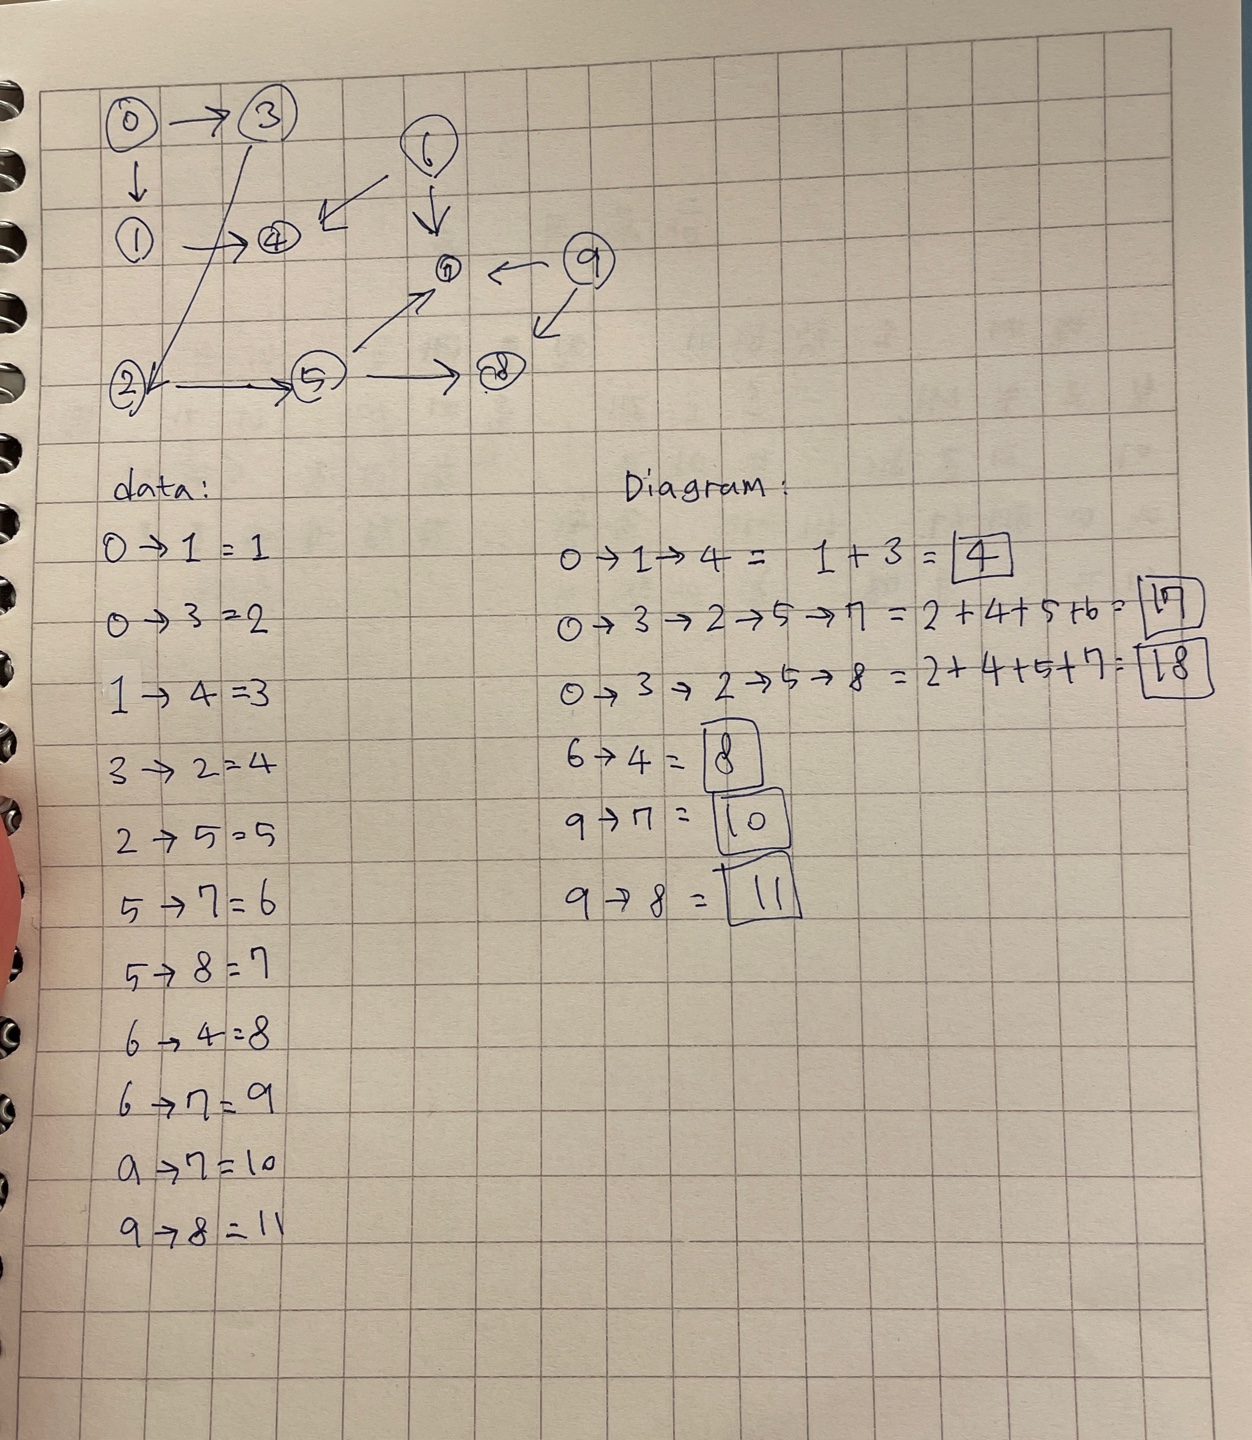 0 → 3
6
1 → 4
7 ← 9
2 → 5 → 8
data:
0 → 1 = 1
0 → 3 = 2
1 → 4 = 3
3 → 2 = 4
2 → 5 = 5
5 → 7 = 6
5 → 8 = 7
6 → 4 = 8
6 → 7 = 9
9 → 7 = 10
9 → 8 = 11
Diagram:
0 → 1 → 4 = 1 + 3 = 4
0 → 3 → 2 → 5 → 7 = 2 + 4 + 5 + 6 = 17
0 → 3 → 2 → 5 → 8 = 2 + 4 + 5 + 7 = 18
6 → 4 = 8
9 → 7 = 10
9 → 8 = 11